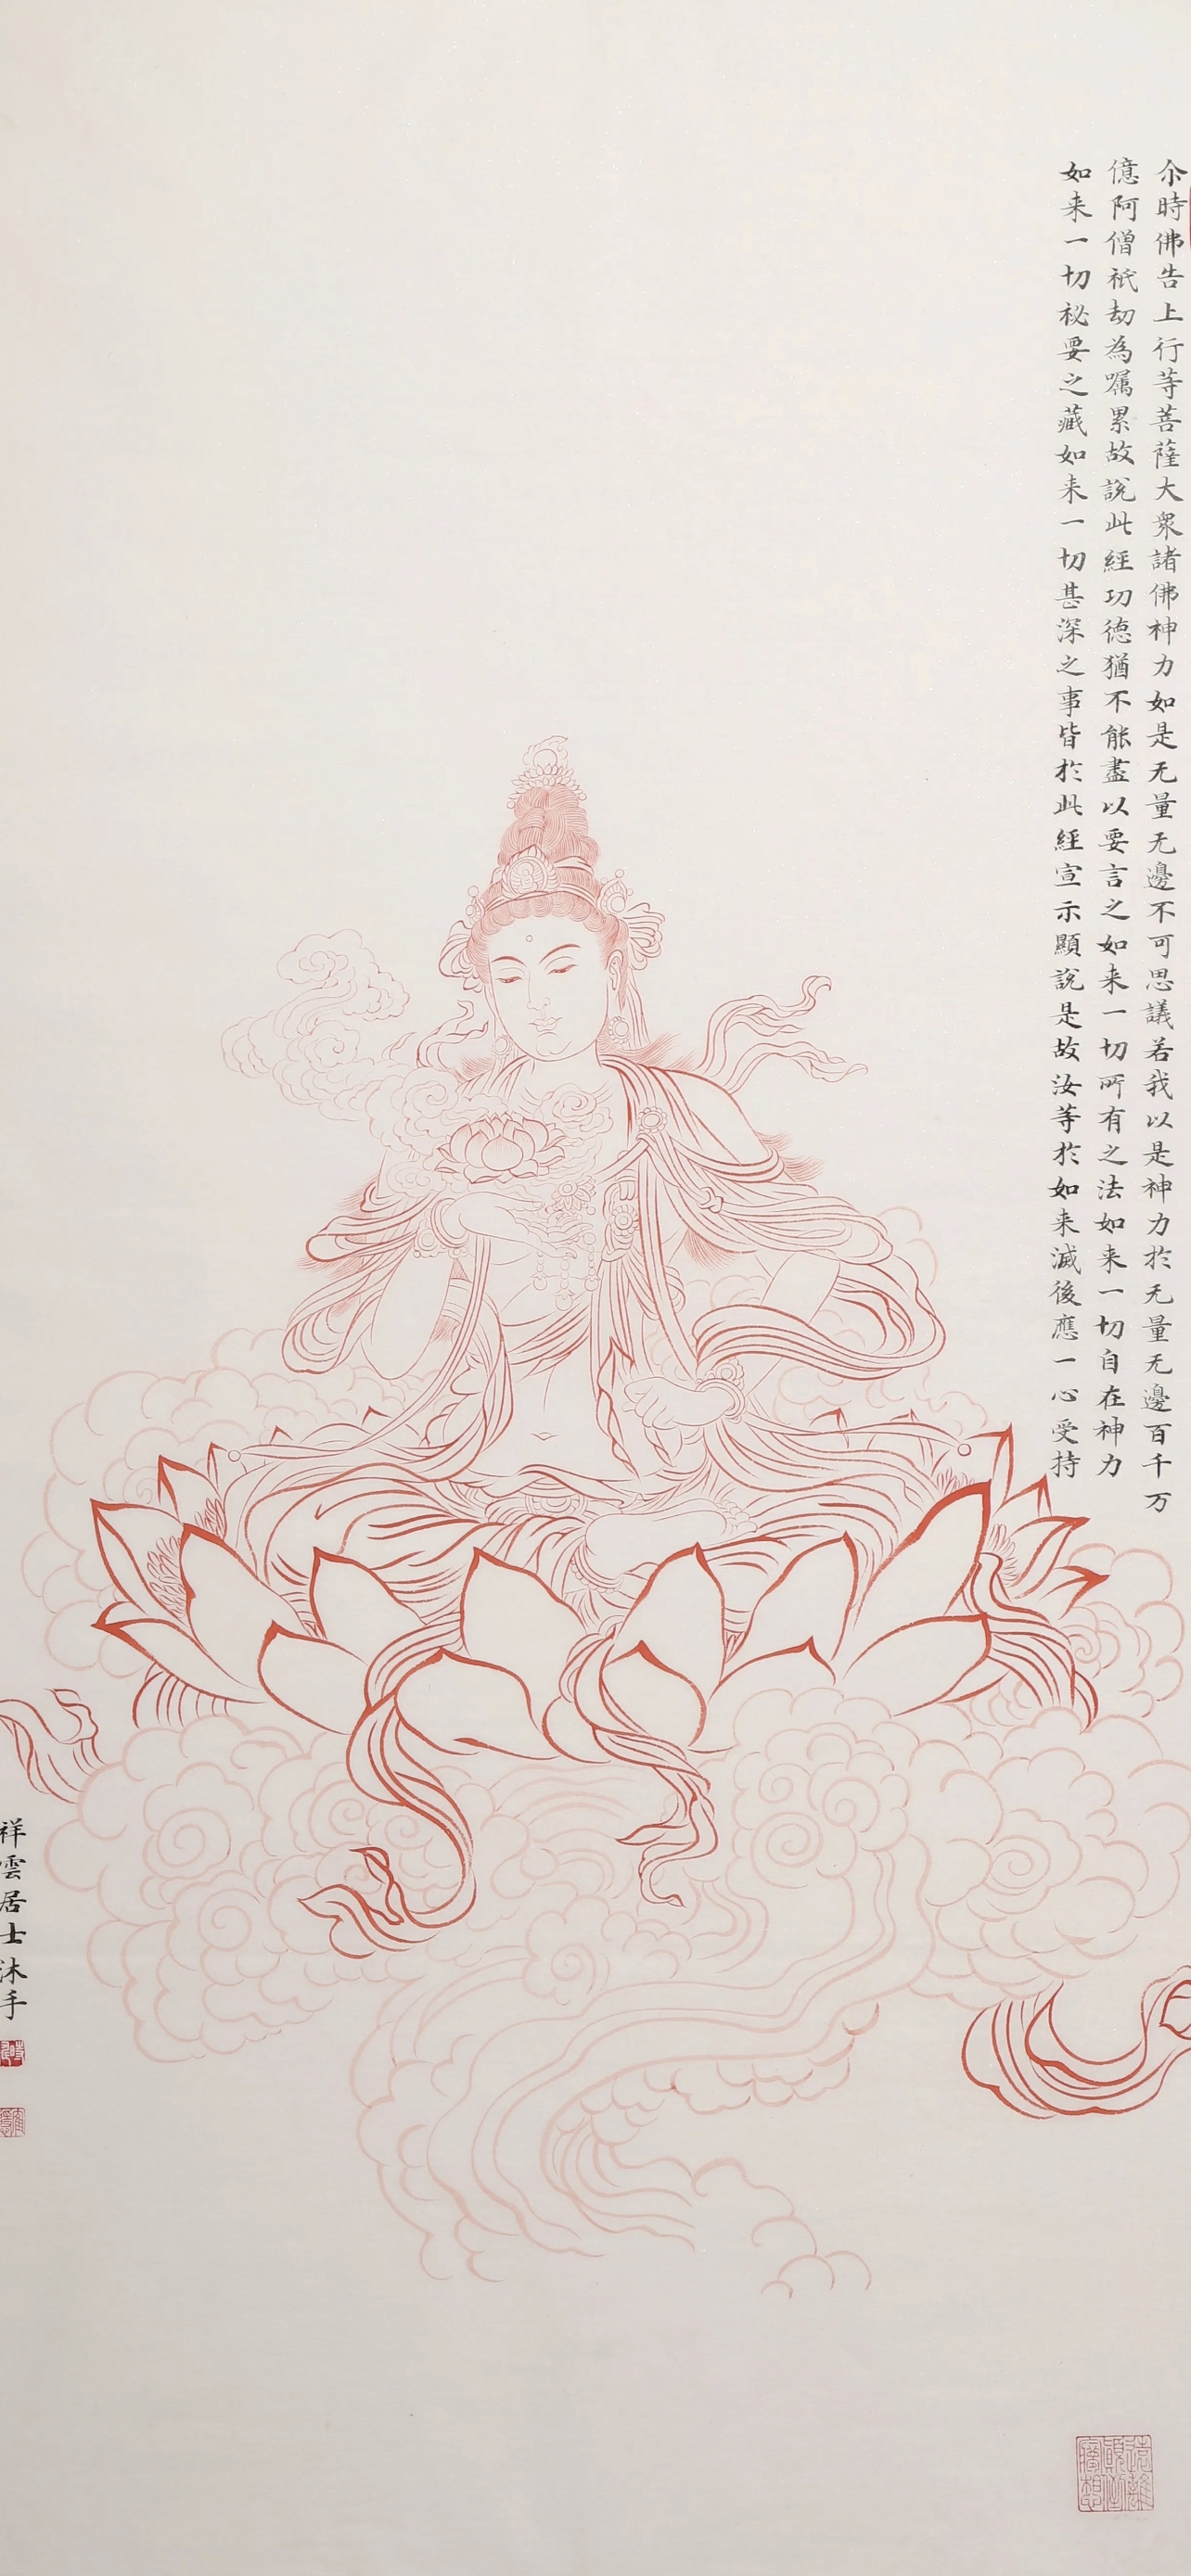 尒時佛告上行等菩薩大眾諸佛神力如是无量无邊不可思議若我以是神力於无量无邊百千万
億阿僧祇劫為嘱累故說此經功德猶不能盡以要言之如来一切所有之法如来一切自在神力
如来一切秘要之藏如来一切甚深之事皆於此經宣示顯說是故汝等於如来滅後應一心受持
祥雲居士沐手
遠離
顛倒
夢想